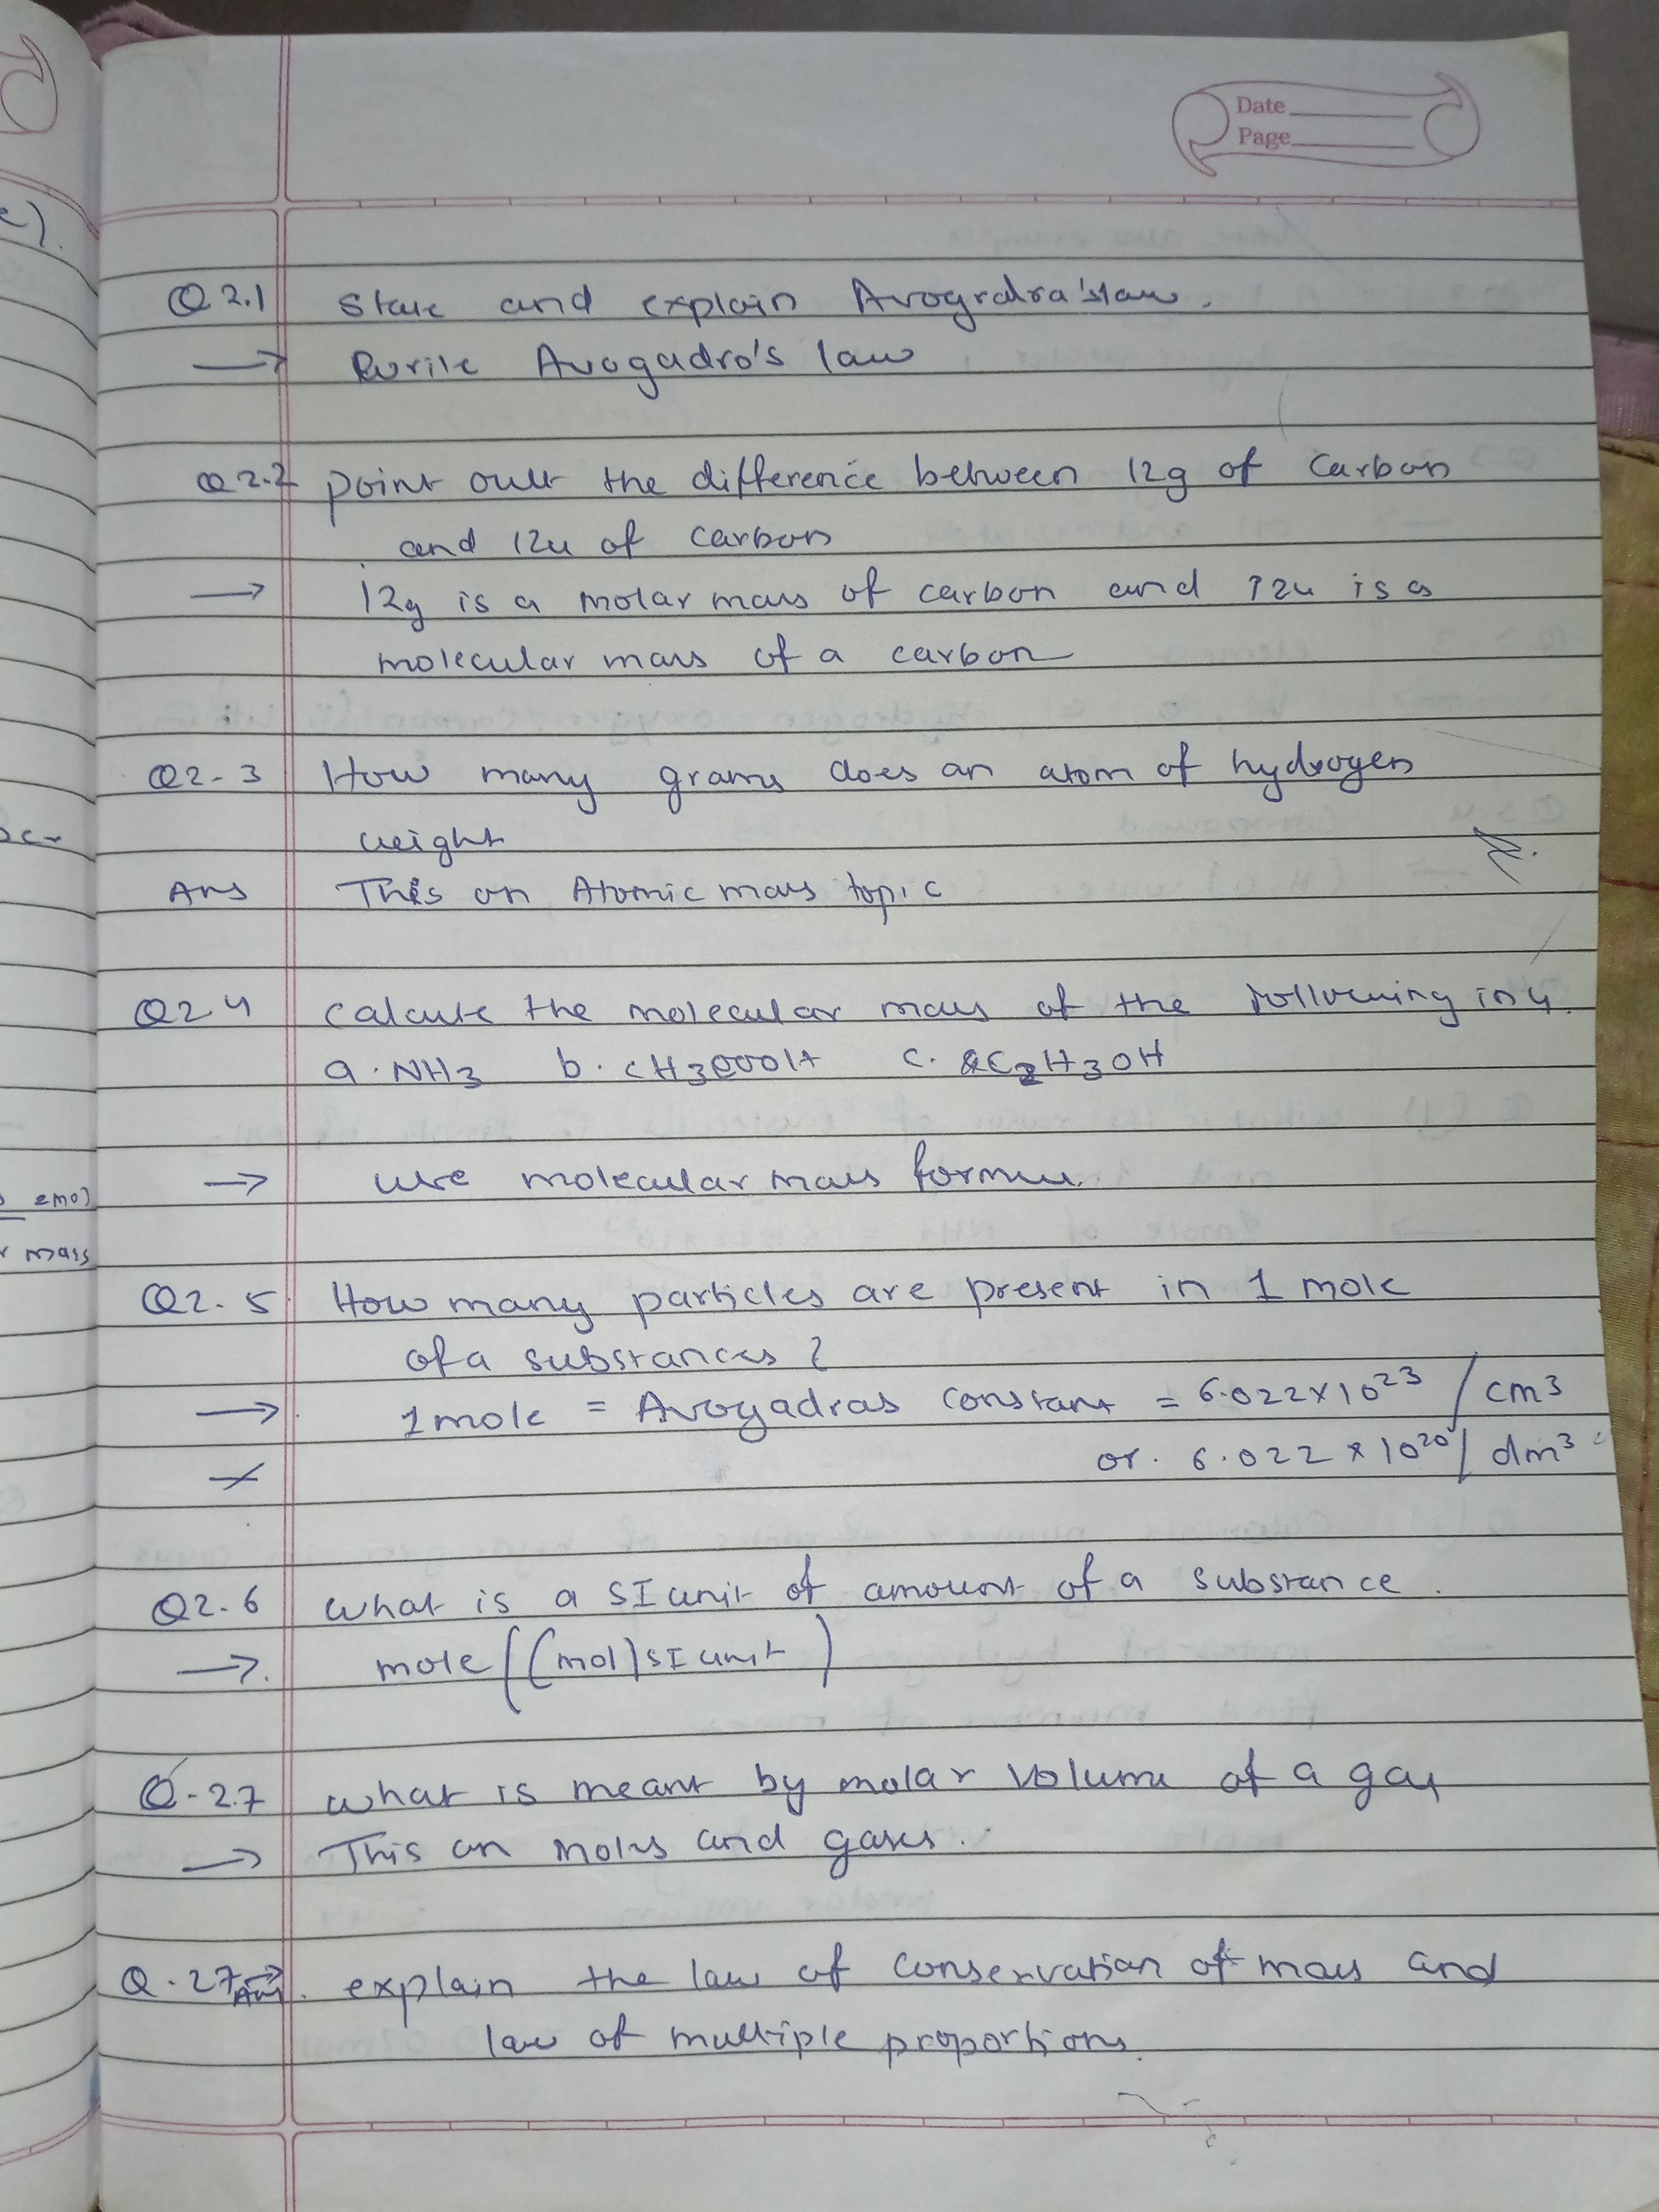 Date
Page
e).
Q 2.1 State and explain Avogrdra'slaw.
→ Rwrite Avogadro's law
Q 2.2 point outt the difference between 12g of Carbon
and 12u of carbon
→ 12g is a molar mass of carbon and 12u is a
molecular mass of a carbon
Q2-3 How many grams does an atom of hydrogen
weight
Ans This on Atomic mass topic
Q2.4 calcute the molecular mass of the following in u.
a. NH3 b. CH3COOH c. C2H3OH
→ use molecular mass formu.
mass
Q2.5 How many particles are present in 1 mole
of a substances ?
→ 1mole = Avogadras constant = 6.022×10²³ / cm3
or. 6.022 × 10²⁰ / dm³
Q2.6 what is a SI unit of amount of a substance.
→. mole ((mol) SI unit)
Q-2.7 what is meant by molar volume of a gas
→ This on moles and gases.
Q.27 Ans. explain the law of conservation of mass and
law of multiple proportions.